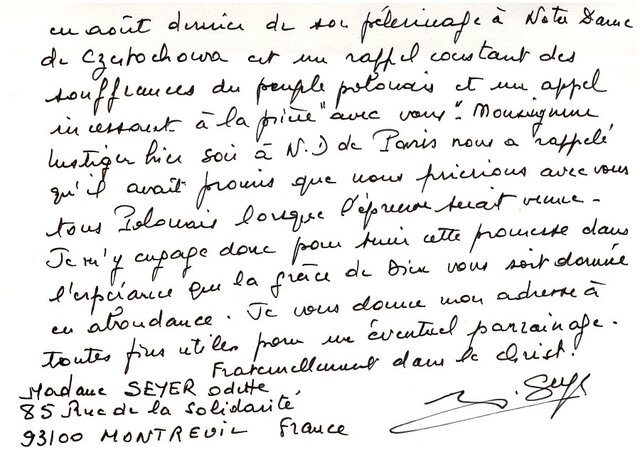 en août dernier de son pélerinage à Notre Dame
de Czestochowa est un rappel constant des
souffrances du peuple polonais et un appel
incessant à la prière "avec vous". Monseigneur
Lustiger hier soir à N.D de Paris nous a rappelé
qu'il avait promis que nous prierions avec vous
tous Polonais lorsque l'épreuve serait venue -
Je m'y engage donc pour tenir cette promesse dans
l'espérance que la grâce de Dieu vous soit donnée
en abondance. Je vous donne mon adresse à
toutes fins utiles pour un éventuel parrainage.
Fraternellement dans le Christ.
Madame SEYER Odette
85 Rue de la Solidarité
93100 MONTREUIL France